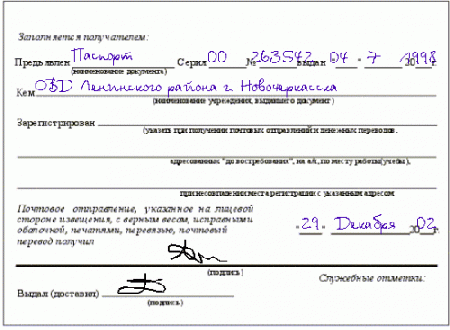 Заполняется получателем:
Предъявлен Паспорт Серия 00 № 263542 выдан 04 - 7 1998
(наименование документа)
Кем ОВД Ленинского района г. Новочеркасска
(наименование учреждения, выдавшего документ)
Зарегистрирован
(указать при получении почтовых отправлений и денежных переводов.
адресованных "до востребования", на а/я, по месту работы(учебы),
при несовпадении места регистрации с указанным адресом
Почтовое отправление, указанное на лицевой
стороне извещения, с верным весом, исправными
оболочкой, печатями, перевязью, почтовый
перевод получил
«29» Декабря 2002г.
(подпись)
Служебные отметки:
Выдал (доставил)
(подпись)